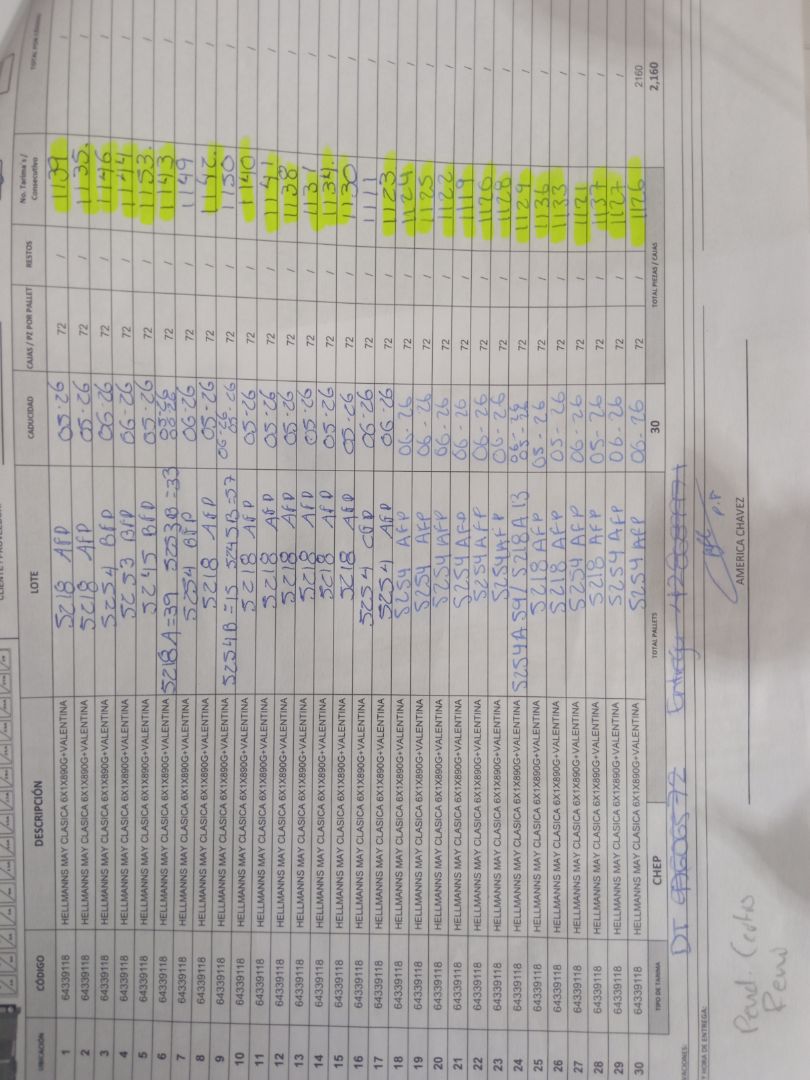 CLIENTE Y PROVEEDOR:
UBICACIÓN CÓDIGO DESCRIPCIÓN LOTE CADUCIDAD CAJAS / PZ POR PALLET RESTOS No. Tarima's / Consecutivo
1 64339118 HELLMANNS MAY CLASICA 6X1X890G+VALENTINA 5218 AFP 05-26 72 / 1139 /
2 64339118 HELLMANNS MAY CLASICA 6X1X890G+VALENTINA 5218 AFP 05-26 72 / 1135. /
3 64339118 HELLMANNS MAY CLASICA 6X1X890G+VALENTINA 5254 BFP 06-26 72 / 1146 /
4 64339118 HELLMANNS MAY CLASICA 6X1X890G+VALENTINA 5253 BFP 06-26 72 / 1144 /
5 64339118 HELLMANNS MAY CLASICA 6X1X890G+VALENTINA 5245 BFP 05-26 72 / 1153. /
6 64339118 HELLMANNS MAY CLASICA 6X1X890G+VALENTINA 5218A=39 5253B=33 72 / 1143 /
7 64339118 HELLMANNS MAY CLASICA 6X1X890G+VALENTINA 5254 BFP 06-26 72 / 1149 /
8 64339118 HELLMANNS MAY CLASICA 6X1X890G+VALENTINA 5218 AFP 05-26 72 / 1142. /
9 64339118 HELLMANNS MAY CLASICA 6X1X890G+VALENTINA 5254B=15 5245B=57 06-26 05-26 72 / 1150 /
10 64339118 HELLMANNS MAY CLASICA 6X1X890G+VALENTINA 5218 AFP 05-26 72 / 1140 /
11 64339118 HELLMANNS MAY CLASICA 6X1X890G+VALENTINA 5218 AFP 05-26 72 / 1141 /
12 64339118 HELLMANNS MAY CLASICA 6X1X890G+VALENTINA 5218 AFP 05-26 72 / 1138 /
13 64339118 HELLMANNS MAY CLASICA 6X1X890G+VALENTINA 5218 AFP 05-26 72 / 1131 /
14 64339118 HELLMANNS MAY CLASICA 6X1X890G+VALENTINA 5218 AFP 05-26 72 / 1134. /
15 64339118 HELLMANNS MAY CLASICA 6X1X890G+VALENTINA 5218 AFP 05-26 72 / 1130 /
16 64339118 HELLMANNS MAY CLASICA 6X1X890G+VALENTINA 5254 CFP 06-26 72 / 1111 /
17 64339118 HELLMANNS MAY CLASICA 6X1X890G+VALENTINA 5254 AFP 06-26 72 / 1123. /
18 64339118 HELLMANNS MAY CLASICA 6X1X890G+VALENTINA 5254 AFP 06-26 72 / 1124 /
19 64339118 HELLMANNS MAY CLASICA 6X1X890G+VALENTINA 5254 AFP 06-26 72 / 1125 /
20 64339118 HELLMANNS MAY CLASICA 6X1X890G+VALENTINA 5254 AFP 06-26 72 / 1122 /
21 64339118 HELLMANNS MAY CLASICA 6X1X890G+VALENTINA 5254 AFP 06-26 72 / 1119 /
22 64339118 HELLMANNS MAY CLASICA 6X1X890G+VALENTINA 5254 AFP 06-26 72 / 1120 /
23 64339118 HELLMANNS MAY CLASICA 6X1X890G+VALENTINA 5254 AFP 06-26 72 / 1128 /
24 64339118 HELLMANNS MAY CLASICA 6X1X890G+VALENTINA 5254A 59/ 5218A 13 06-26 05-26 72 / 1129 /
25 64339118 HELLMANNS MAY CLASICA 6X1X890G+VALENTINA 5218 AFP 05-26 72 / 1136 /
26 64339118 HELLMANNS MAY CLASICA 6X1X890G+VALENTINA 5218 AFP 05-26 72 / 1133 /
27 64339118 HELLMANNS MAY CLASICA 6X1X890G+VALENTINA 5254 AFP 06-26 72 / 1121 /
28 64339118 HELLMANNS MAY CLASICA 6X1X890G+VALENTINA 5218 AFP 05-26 72 / 1137 /
29 64339118 HELLMANNS MAY CLASICA 6X1X890G+VALENTINA 5254 AFP 06-26 72 / 1127 /
30 64339118 HELLMANNS MAY CLASICA 6X1X890G+VALENTINA 5254 AFP 06-26 72 / 1126 2160
TIPO DE TARIMA CHEP TOTAL PALLETS 30 TOTAL PIEZAS / CAJAS 2,160
DT
Y HORA DE ENTREGA:
P.P
AMERICA CHAVEZ